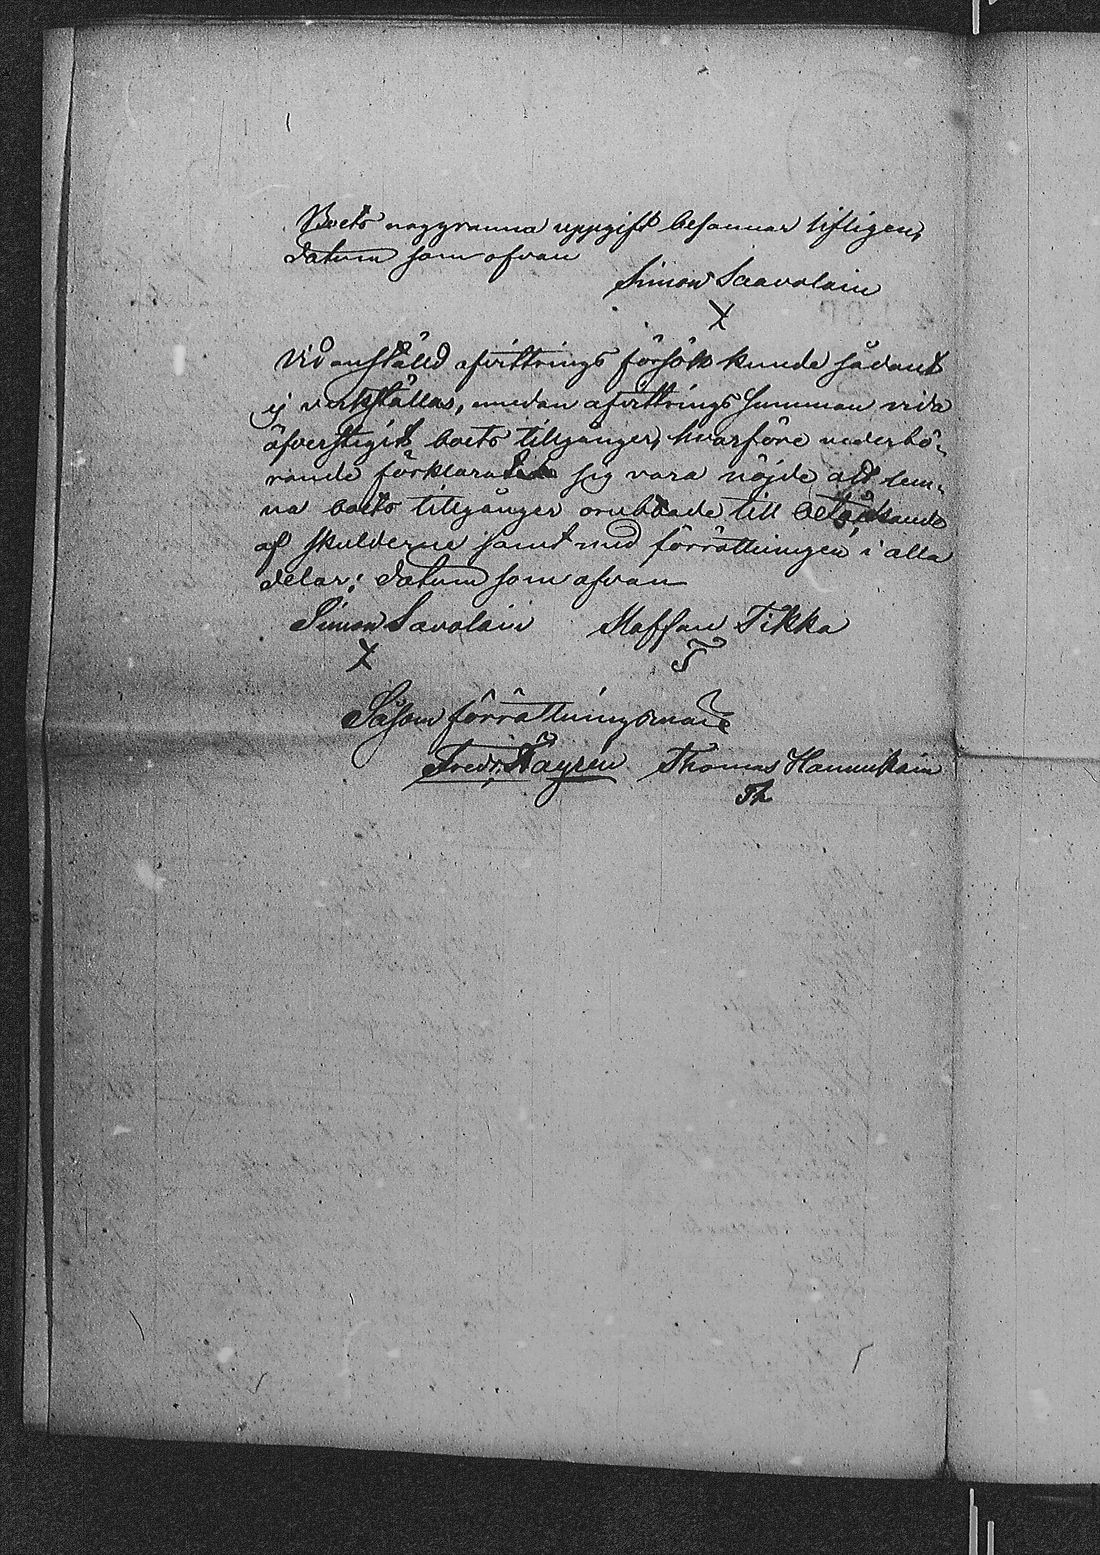 Boets noggranna uppgift besannar liftligen,
datum som ofvan
Simon Saavolain
X
Vid anställd afvittrings försök kunde sådant
ej verkställas, emedan afvittrings summan vida
öfverstigit boets tillgångar, hvarföre vederbö-
rande förklarade sig vara nöjde att lem-
na boets tillgångar orubbade till betäckande
af skulderne samt med förrättningen i alla
delar; datum som ofvan
Simon Savolain Staffan Tikka
X T
Såsom förrättningsman
Fredr. Hayrén Thomas Hannukain
Th